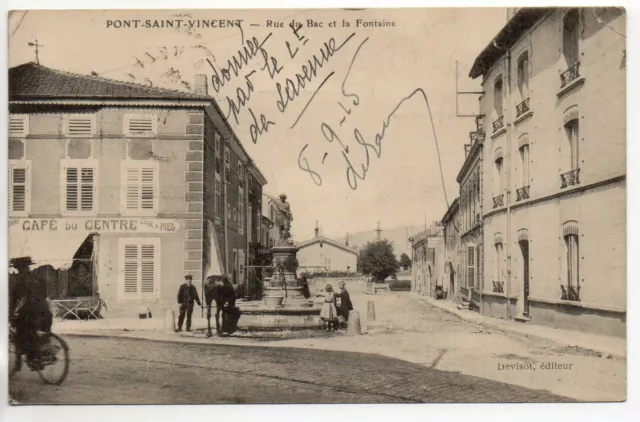 PONT-SAINT-VINCENT — Rue du Bac et la Fontaine
donnée
par le Lt
de Lavenne
8-9-15
CAFÉ DU CENTRE
À PIED
Devisot, éditeur